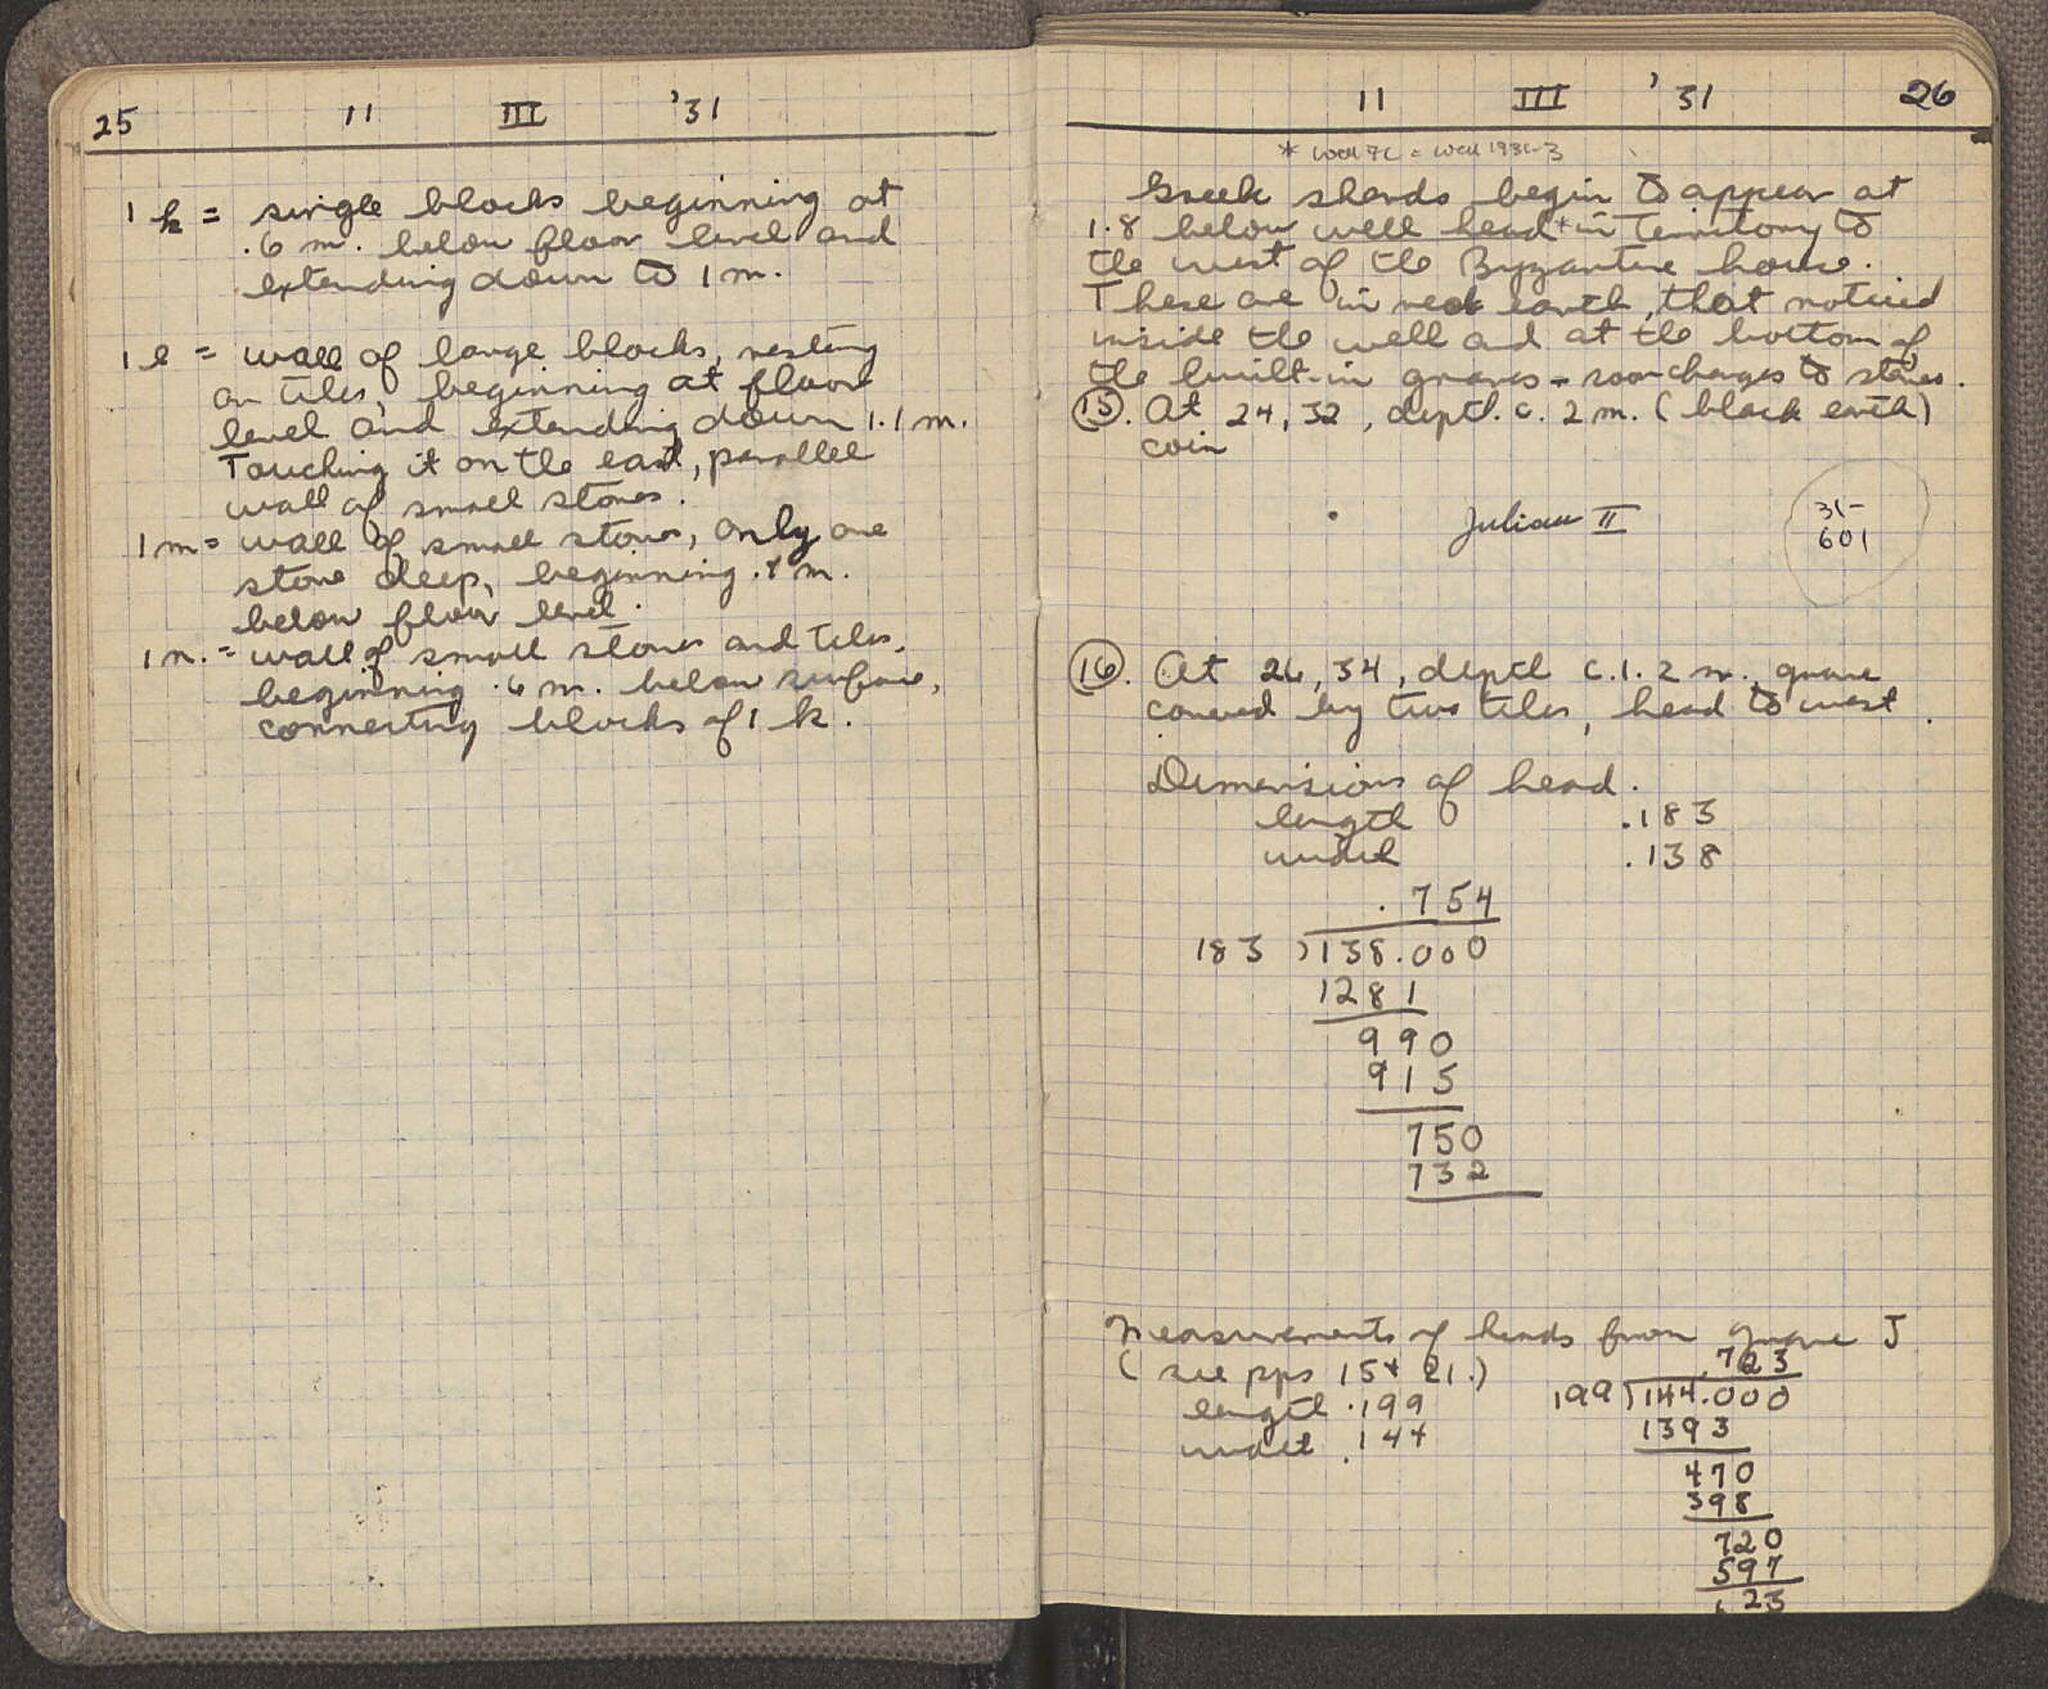 25 11 III '31
1 k = single blocks beginning at
.6 m. below floor level and
extending down to 1 m.
1 l = wall of large blocks, resting
on tiles, beginning at floor
level and extending down 1.1 m.
Touching it on the east, parallel
wall of small stones.
1 m = wall of small stones, only one
stone deep, beginning m.
below floor level.
1 n. = wall of small stones and tiles,
beginning .6 m. below surface,
connecting blocks of 1 k.
11 III '31 26
* Well 7C = Well 1931-3
Greek sherds begin to appear at
1.8 below well head* in territory to
the west of the Byzantine house.
These are in red earth, that noticed
inside the well and at the bottom of
the built-in graves - soon changes to stones.
(15). At 24, 32, depth c. 2 m. (black earth)
coin
Julian II
31-
601
(16). At 26, 34, depth c. 1.2 m., grave
covered by two tiles, head to west.
Dimensions of head.
length .183
width .138
.754
183 )138.000
1281
990
915
750
732
Measurements of heads from grave J
(see pps 15 + 21.)
.723
length .199
199)144.000
width .144
1393
470
398
720
597
123